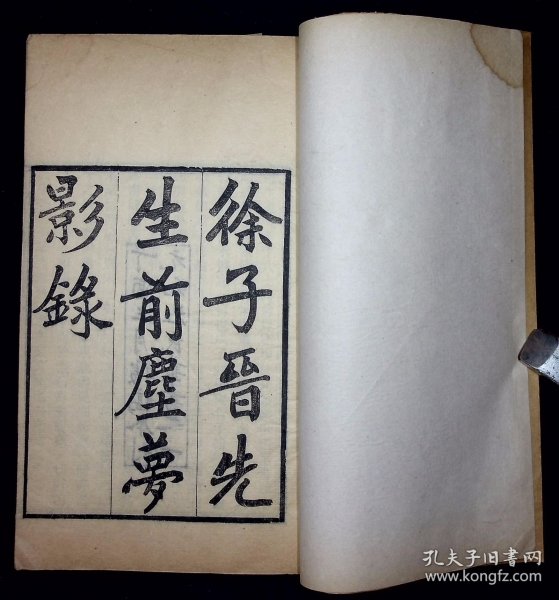 徐子晉先
生前塵夢
影錄
孔夫子旧书网
www.kongfz.com